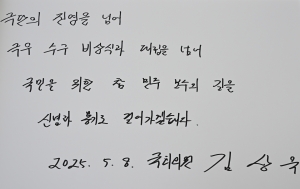 극단의 진영을 넘어
극우 수구 비상식과 대립을 넘어
국민을 위한 참 민주 보수의 길을
신념과 용기로 걸어가겠습니다.
2025. 5. 8. 국회의원 김상욱